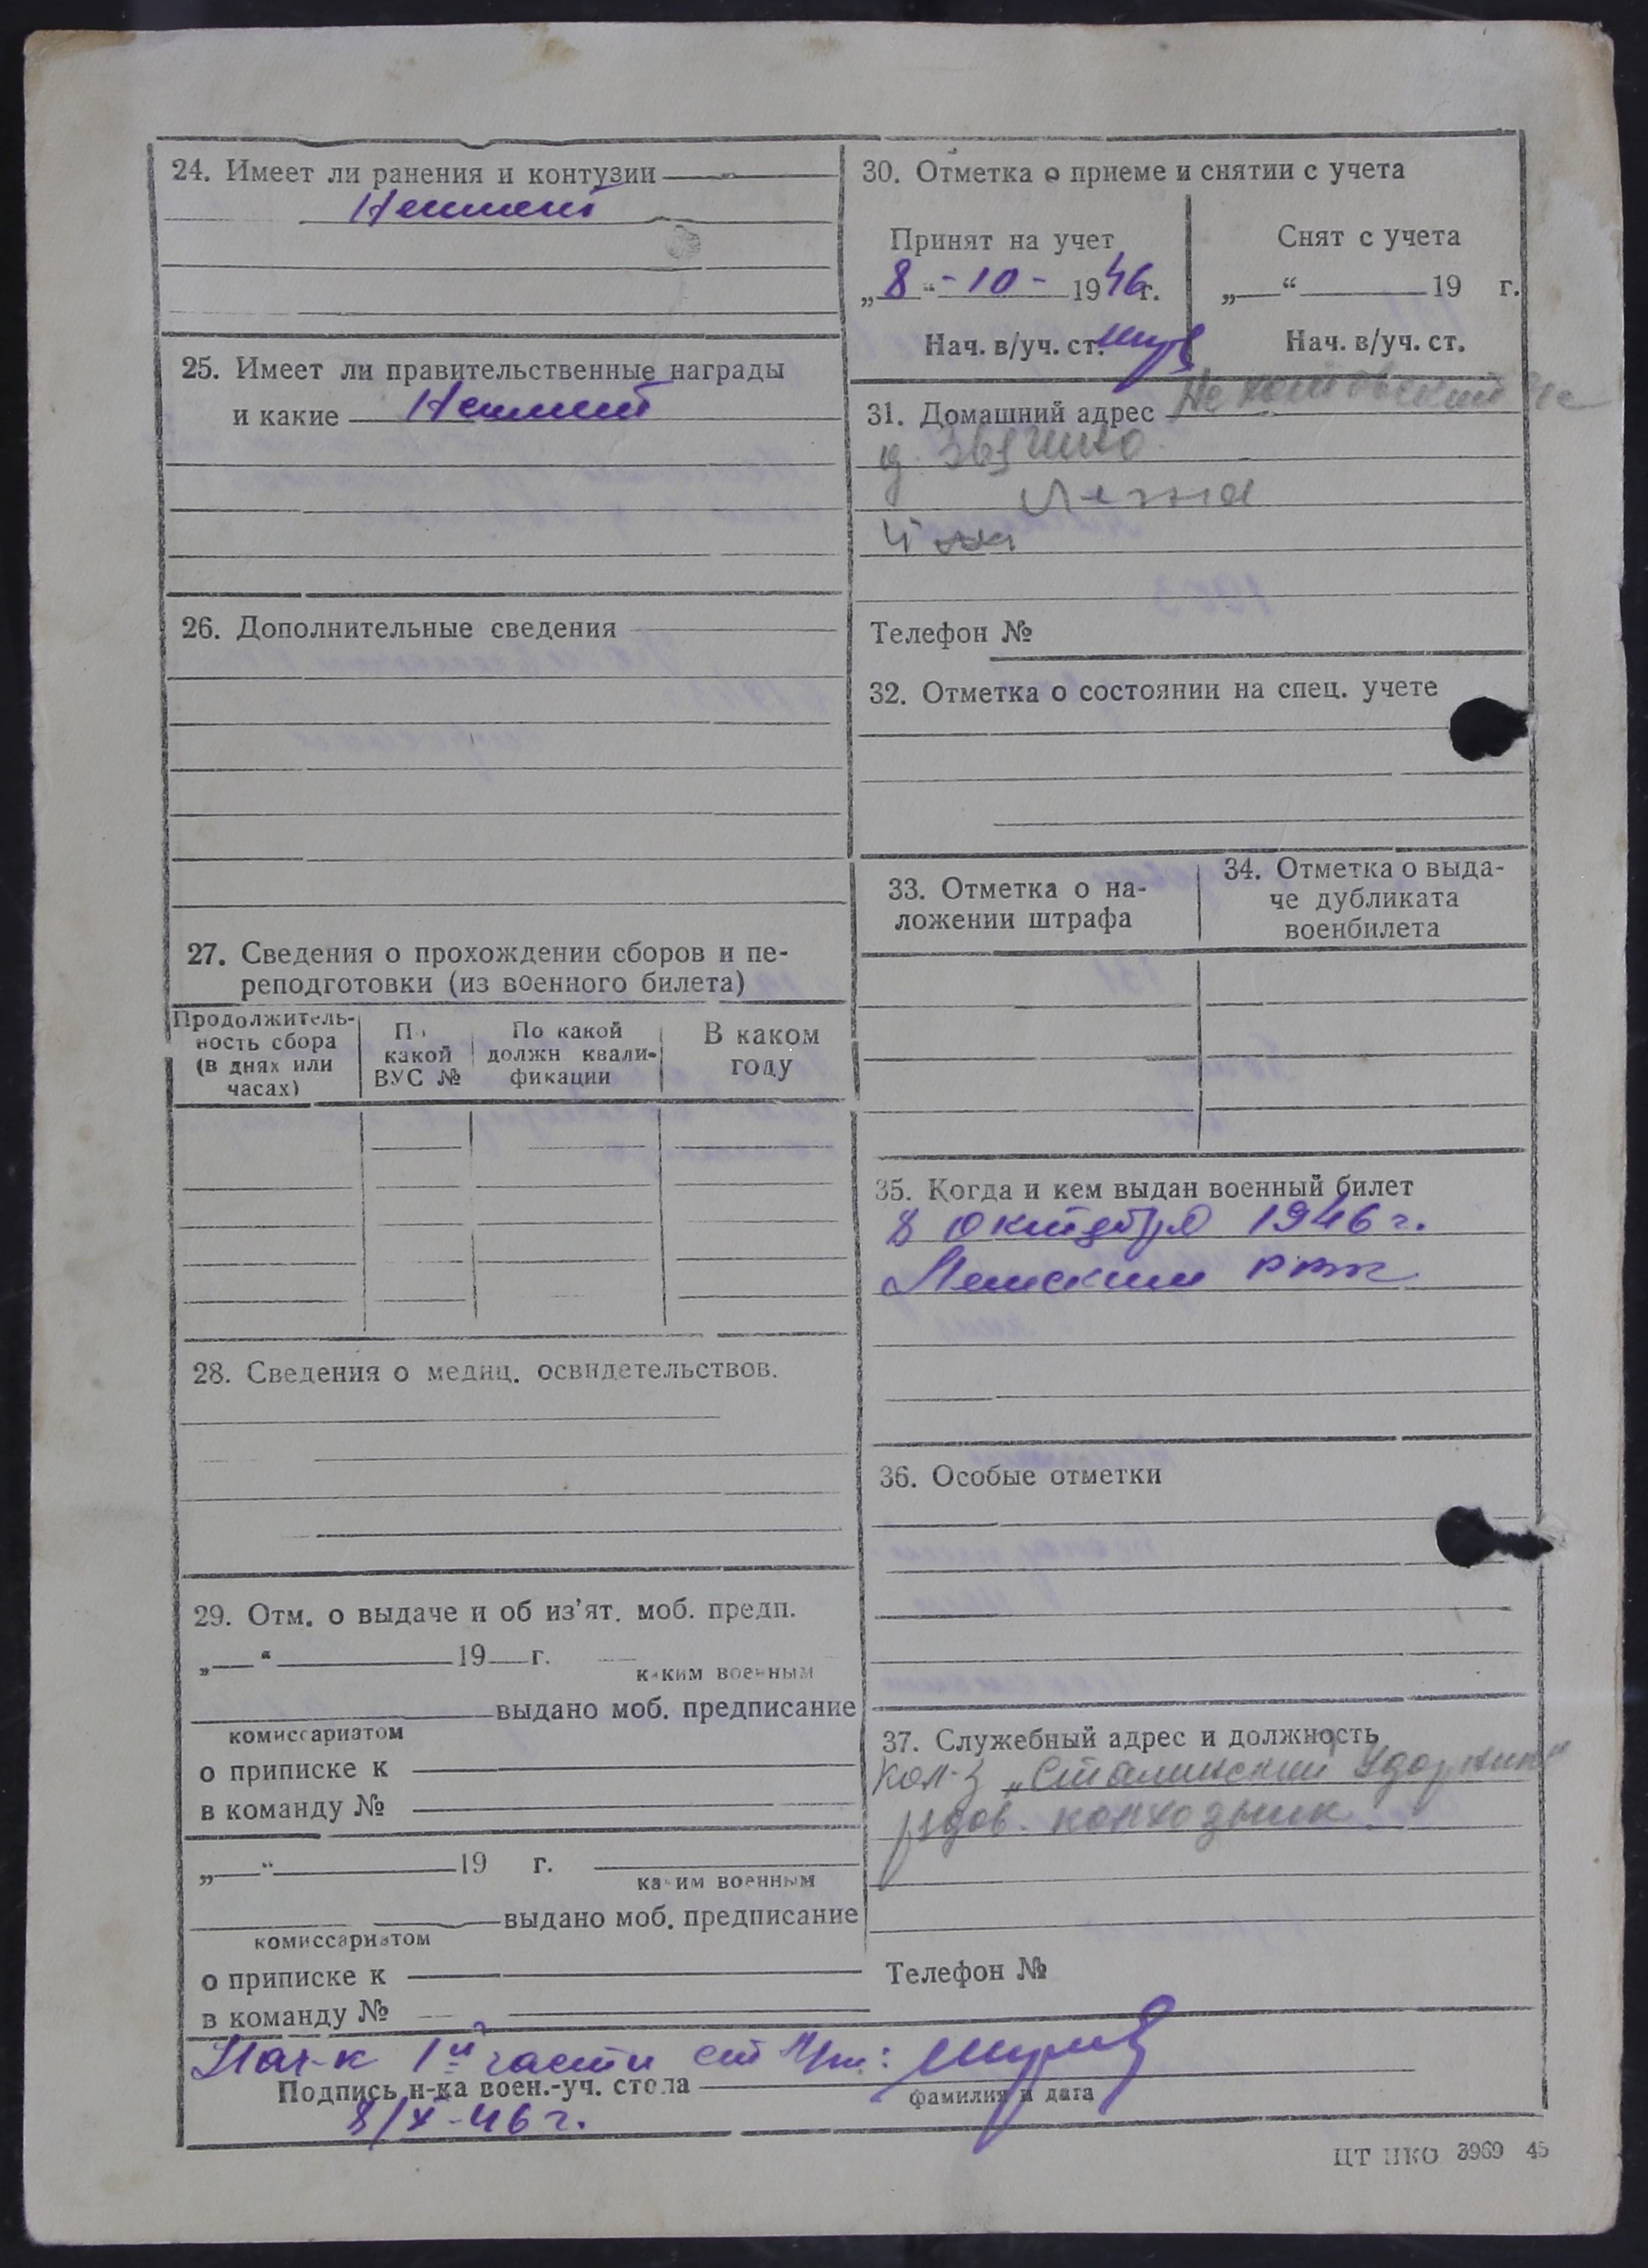 24. Имеет ли ранения и контузии
Не имеет
25. Имеет ли правительственные награды
и какие Не имеет
26. Дополнительные сведения
27. Сведения о прохождении сборов и пе-
реподготовки (из военного билета)
Продолжитель-
ность сбора
(в днях или
часах)
По
какой
ВУС №
По какой
должн квали-
фикации
В каком
году
28. Сведения о медиц. освидетельствов.
29. Отм. о выдаче и об из'ят. моб. предп.
„ “ 19 г.
каким военным
выдано моб. предписание
комиссариатом
о приписке к
в команду №
„ “ 19 г.
каким военным
выдано моб. предписание
комиссариатом
о приписке к
в команду №
30. Отметка о приеме и снятии с учета
Принят на учет
„8“ - 10 - 1946г.
Нач. в/уч. ст.
Снят с учета
„ “ 19 г.
Нач. в/уч. ст.
31. Домашний адрес
д. Звягино
Лежа
Телефон №
32. Отметка о состоянии на спец. учете
33. Отметка о на-
ложении штрафа
34. Отметка о выда-
че дубликата
военбилета
35. Когда и кем выдан военный билет
8 октября 1946 г.
РВК
36. Особые отметки
37. Служебный адрес и должность
кол-з „Сталинский Ударник“
рядов. колхозник
Телефон №
Нач-к 1й части ст
Подпись н-ка воен.-уч. стола
фамилия и дата
8/X-46 г.
ЦТ НКО 3969 45